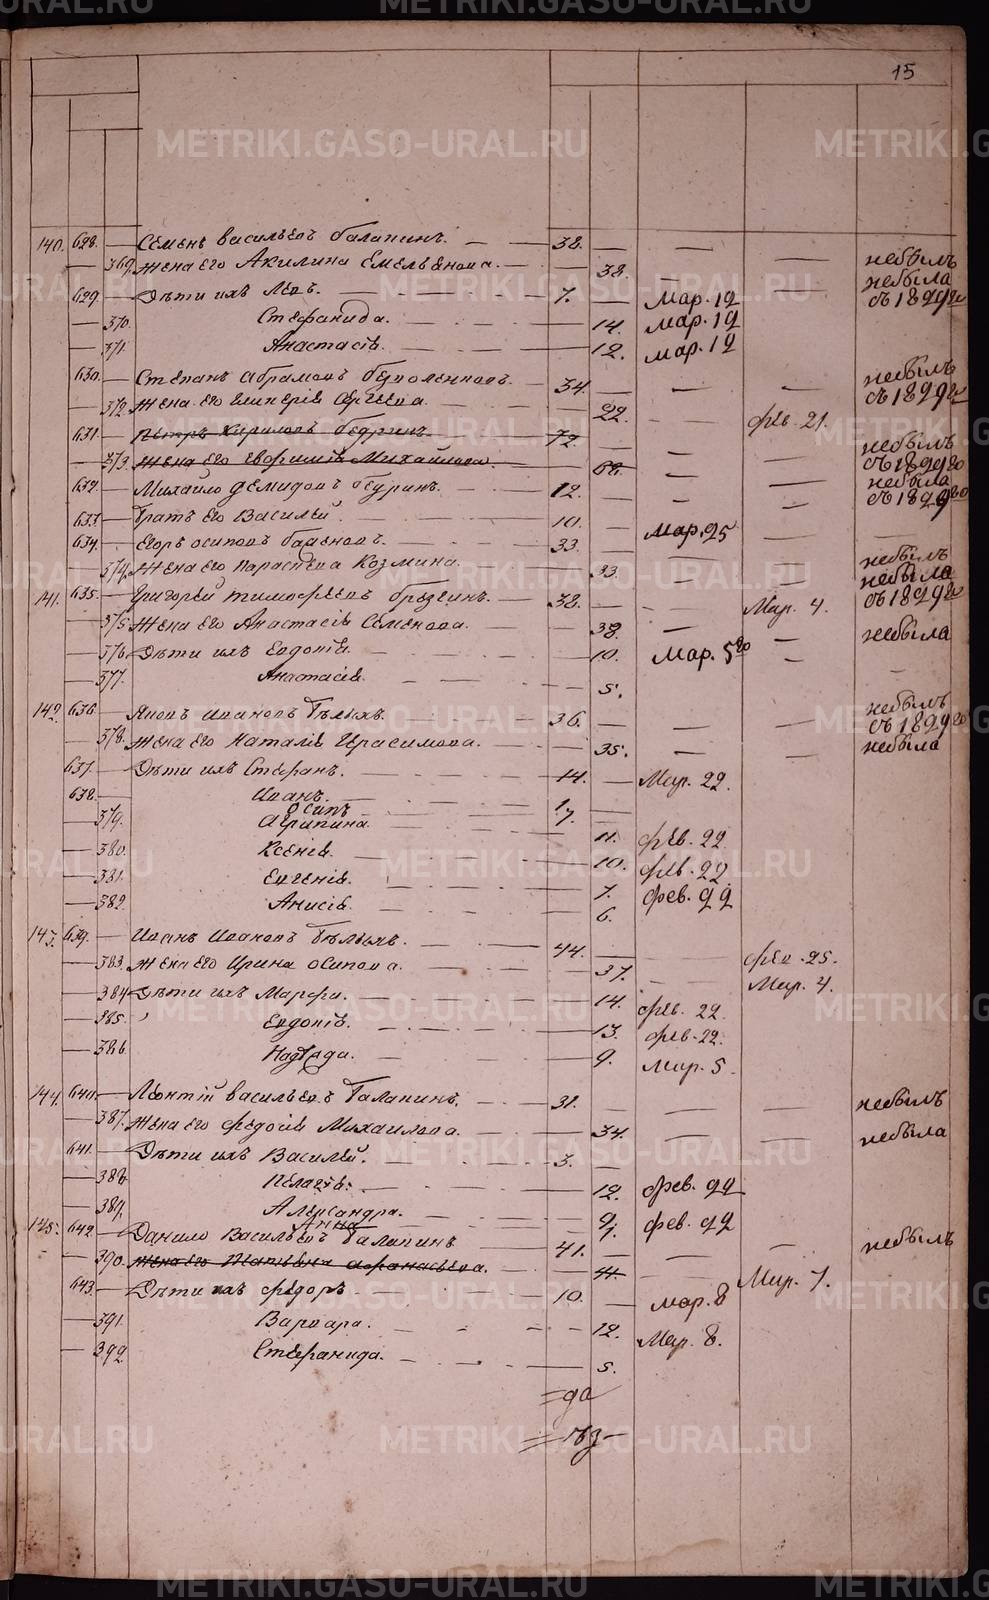 15
140. 628. — Семенъ Васильевъ Балапинъ. — 38. — — — небылъ
— 369. Жена его Акилина Емельянова. — 38. — — небыла
629 — Дѣти ихъ Левъ. — 7. — Мар. 12 съ 1829го
— 370. Стефанида. — 14. Мар. 12
— 371. Анастасія. — 12. мар. 12
630. — Степанъ Абрамовъ — 34. — — — небылъ
— 372. Жена его Гликерія Сергѣева. — 22. — фев. 21. съ 1829го
631. — Петръ Кириловъ — 72. — — небылъ
— 373. Жена его Евфимія Михайлова. — 68. — — съ 1829го
632. — Михайло Демидовъ — 12. — — небыла
633. — Братъ его Василей. — 10. — Мар. 25 — съ 1829го
634. — Егоръ Осиповъ — 33. — — — небылъ
— 374. Жена его Параскева Козмина. — 33. — — небыла
141. 635. — Григорей Тимофеевъ — 38. — — Мар. 4. съ 1829го
— 375. Жена его Анастасія Семенова. — 38. — — небыла
— 376. Дѣти ихъ Евдокія. — 10. Мар. 5го —
— 377. Анастасія. — 5.
142. 636. — Яковъ Ивановъ Бѣлыхъ. — 36. — — — небылъ съ 1829го
— 378. Жена его Наталія Герасимова. — 35. — — небыла
637. — Дѣти ихъ Стефанъ. — 14. — Мар. 22.
638. — Иванъ. — 1. —
Осипъ 7. —
— 379. Агрипина. — 11. фев. 22
— 380. Ксенія. — 10. фев. 22
— 381. Евгенія. — 7. фев. 22
— 382. Анисія. — 6.
143. 639. — Иванъ Ивановъ Бѣлыхъ. — 44. — — фев. 25.
— 383. Жена его Ирина Осипова. — 37. — Мар. 4.
— 384. Дѣти ихъ Марфа. — 14. фев. 22
— 385. Евдокія. — 13. фев. 22.
— 386. Надежда. — 9. Мар. 5.
144. 640. — Леонтій Васильевъ Балапинъ. — 31. — — — небылъ
— 387. Жена его Федосія Михаилова. — 34. — — небыла
641. — Дѣти ихъ Василей. — 3. —
— 388. Пелагія. — 12. фев. 22
— 389. Александра. — 9. фев. 22
Анна
145. 642. — Данило Васильевъ Балапинъ — 41. — — — небылъ
— 390. Жена его Татьяна Афанасьева. — 41. — Мар. 7.
643. — Дѣти ихъ Федоръ — 10. — мар. 8
— 391. Варвара. — 12. Мар. 8.
— 392. Стефанида. — 5.